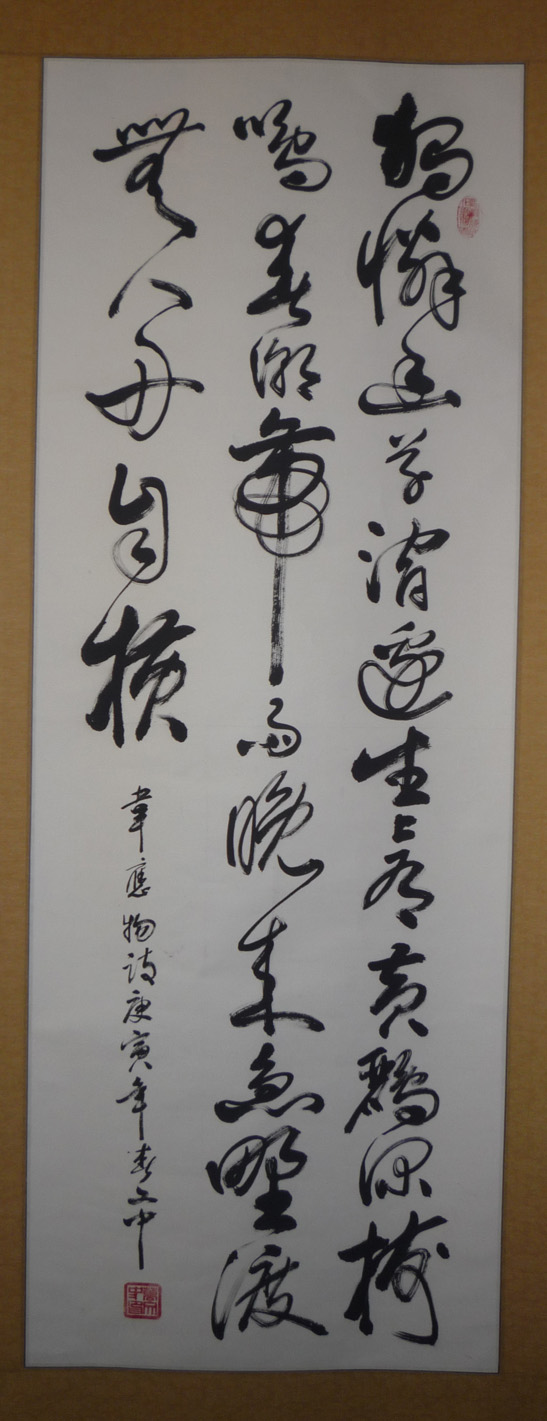 獨憐幽草澗邊生上有黃鸝深樹
鳴春潮帶雨晚來急野渡
無人舟自橫
韋應物詩庚寅年春文中